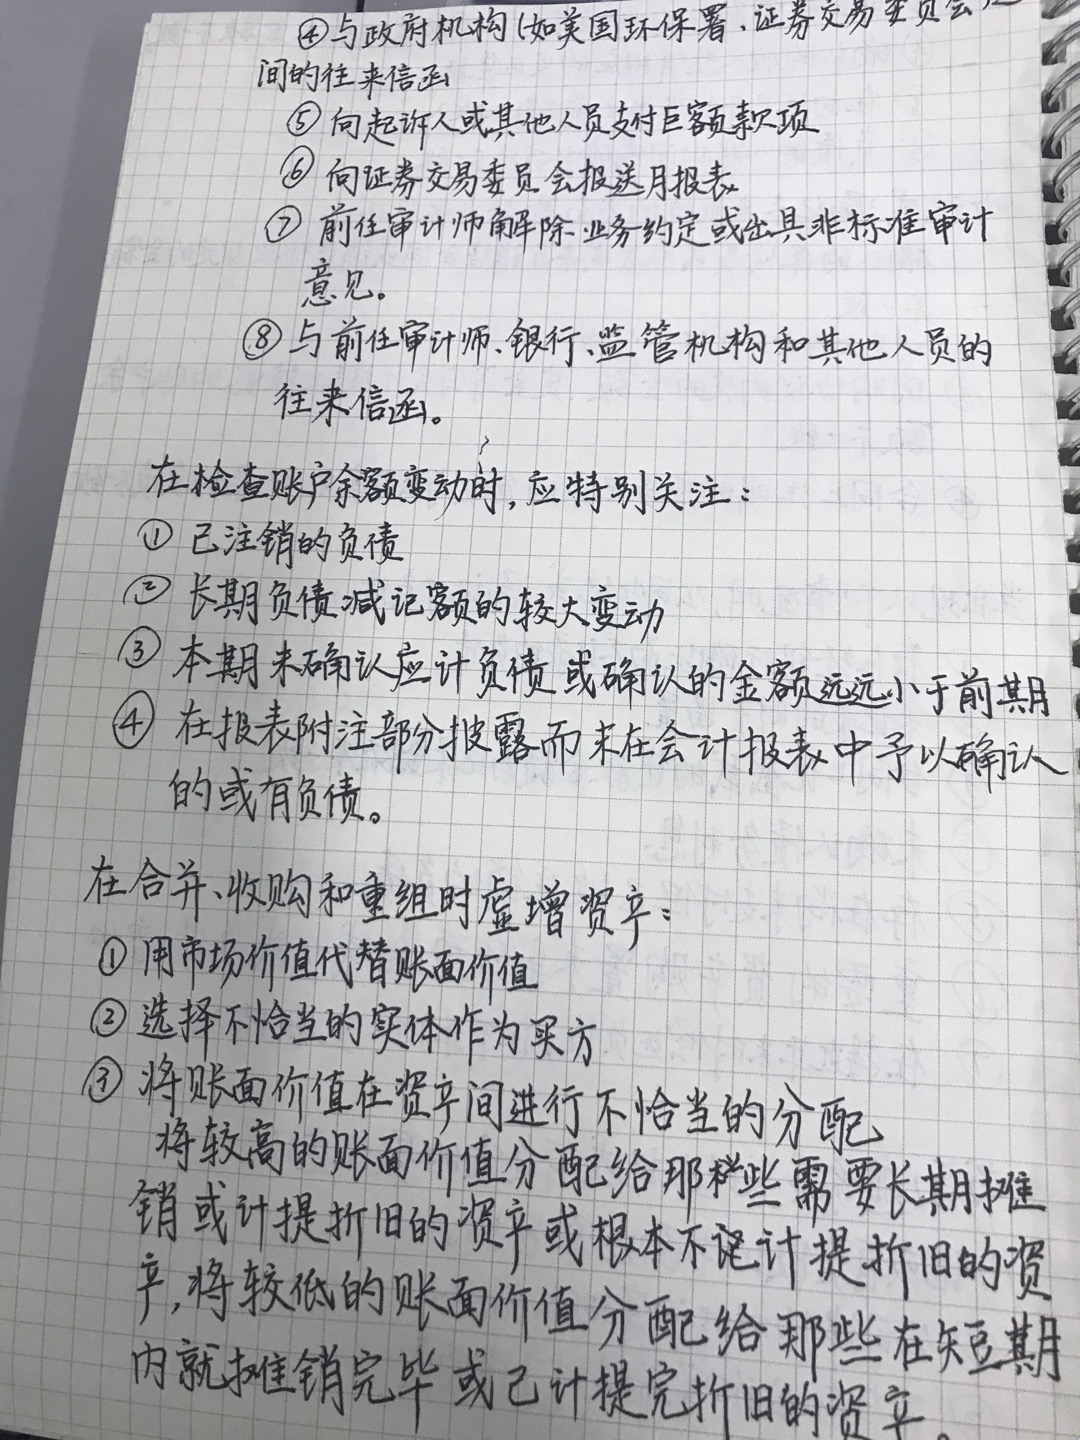 ④与政府机构(如美国环保署、证券交易委员会)之
间的往来信函
⑤ 向起诉人或其他人员支付巨额款项
⑥ 向证券交易委员会报送月报表
⑦ 前任审计师解除业务约定或出具非标准审计
意见。
⑧与前任审计师、银行、监管机构和其他人员的
往来信函。
在检查账户余额变动时,应特别关注:
① 已注销的负债
② 长期负债减记额的较大变动
③ 本期未确认应计负债或确认的金额远远小于前期
④ 在报表附注部分披露而未在会计报表中予以确认
的或有负债。
在合并、收购和重组时虚增资产:
① 用市场价值代替账面价值
② 选择不恰当的实体作为买方
③ 将账面价值在资产间进行不恰当的分配
将较高的账面价值分配给那些需要长期摊
销或计提折旧的资产或根本不计提折旧的资
产,将较低的账面价值分配给那些在短期
内就摊销完毕或已计提完折旧的资产。